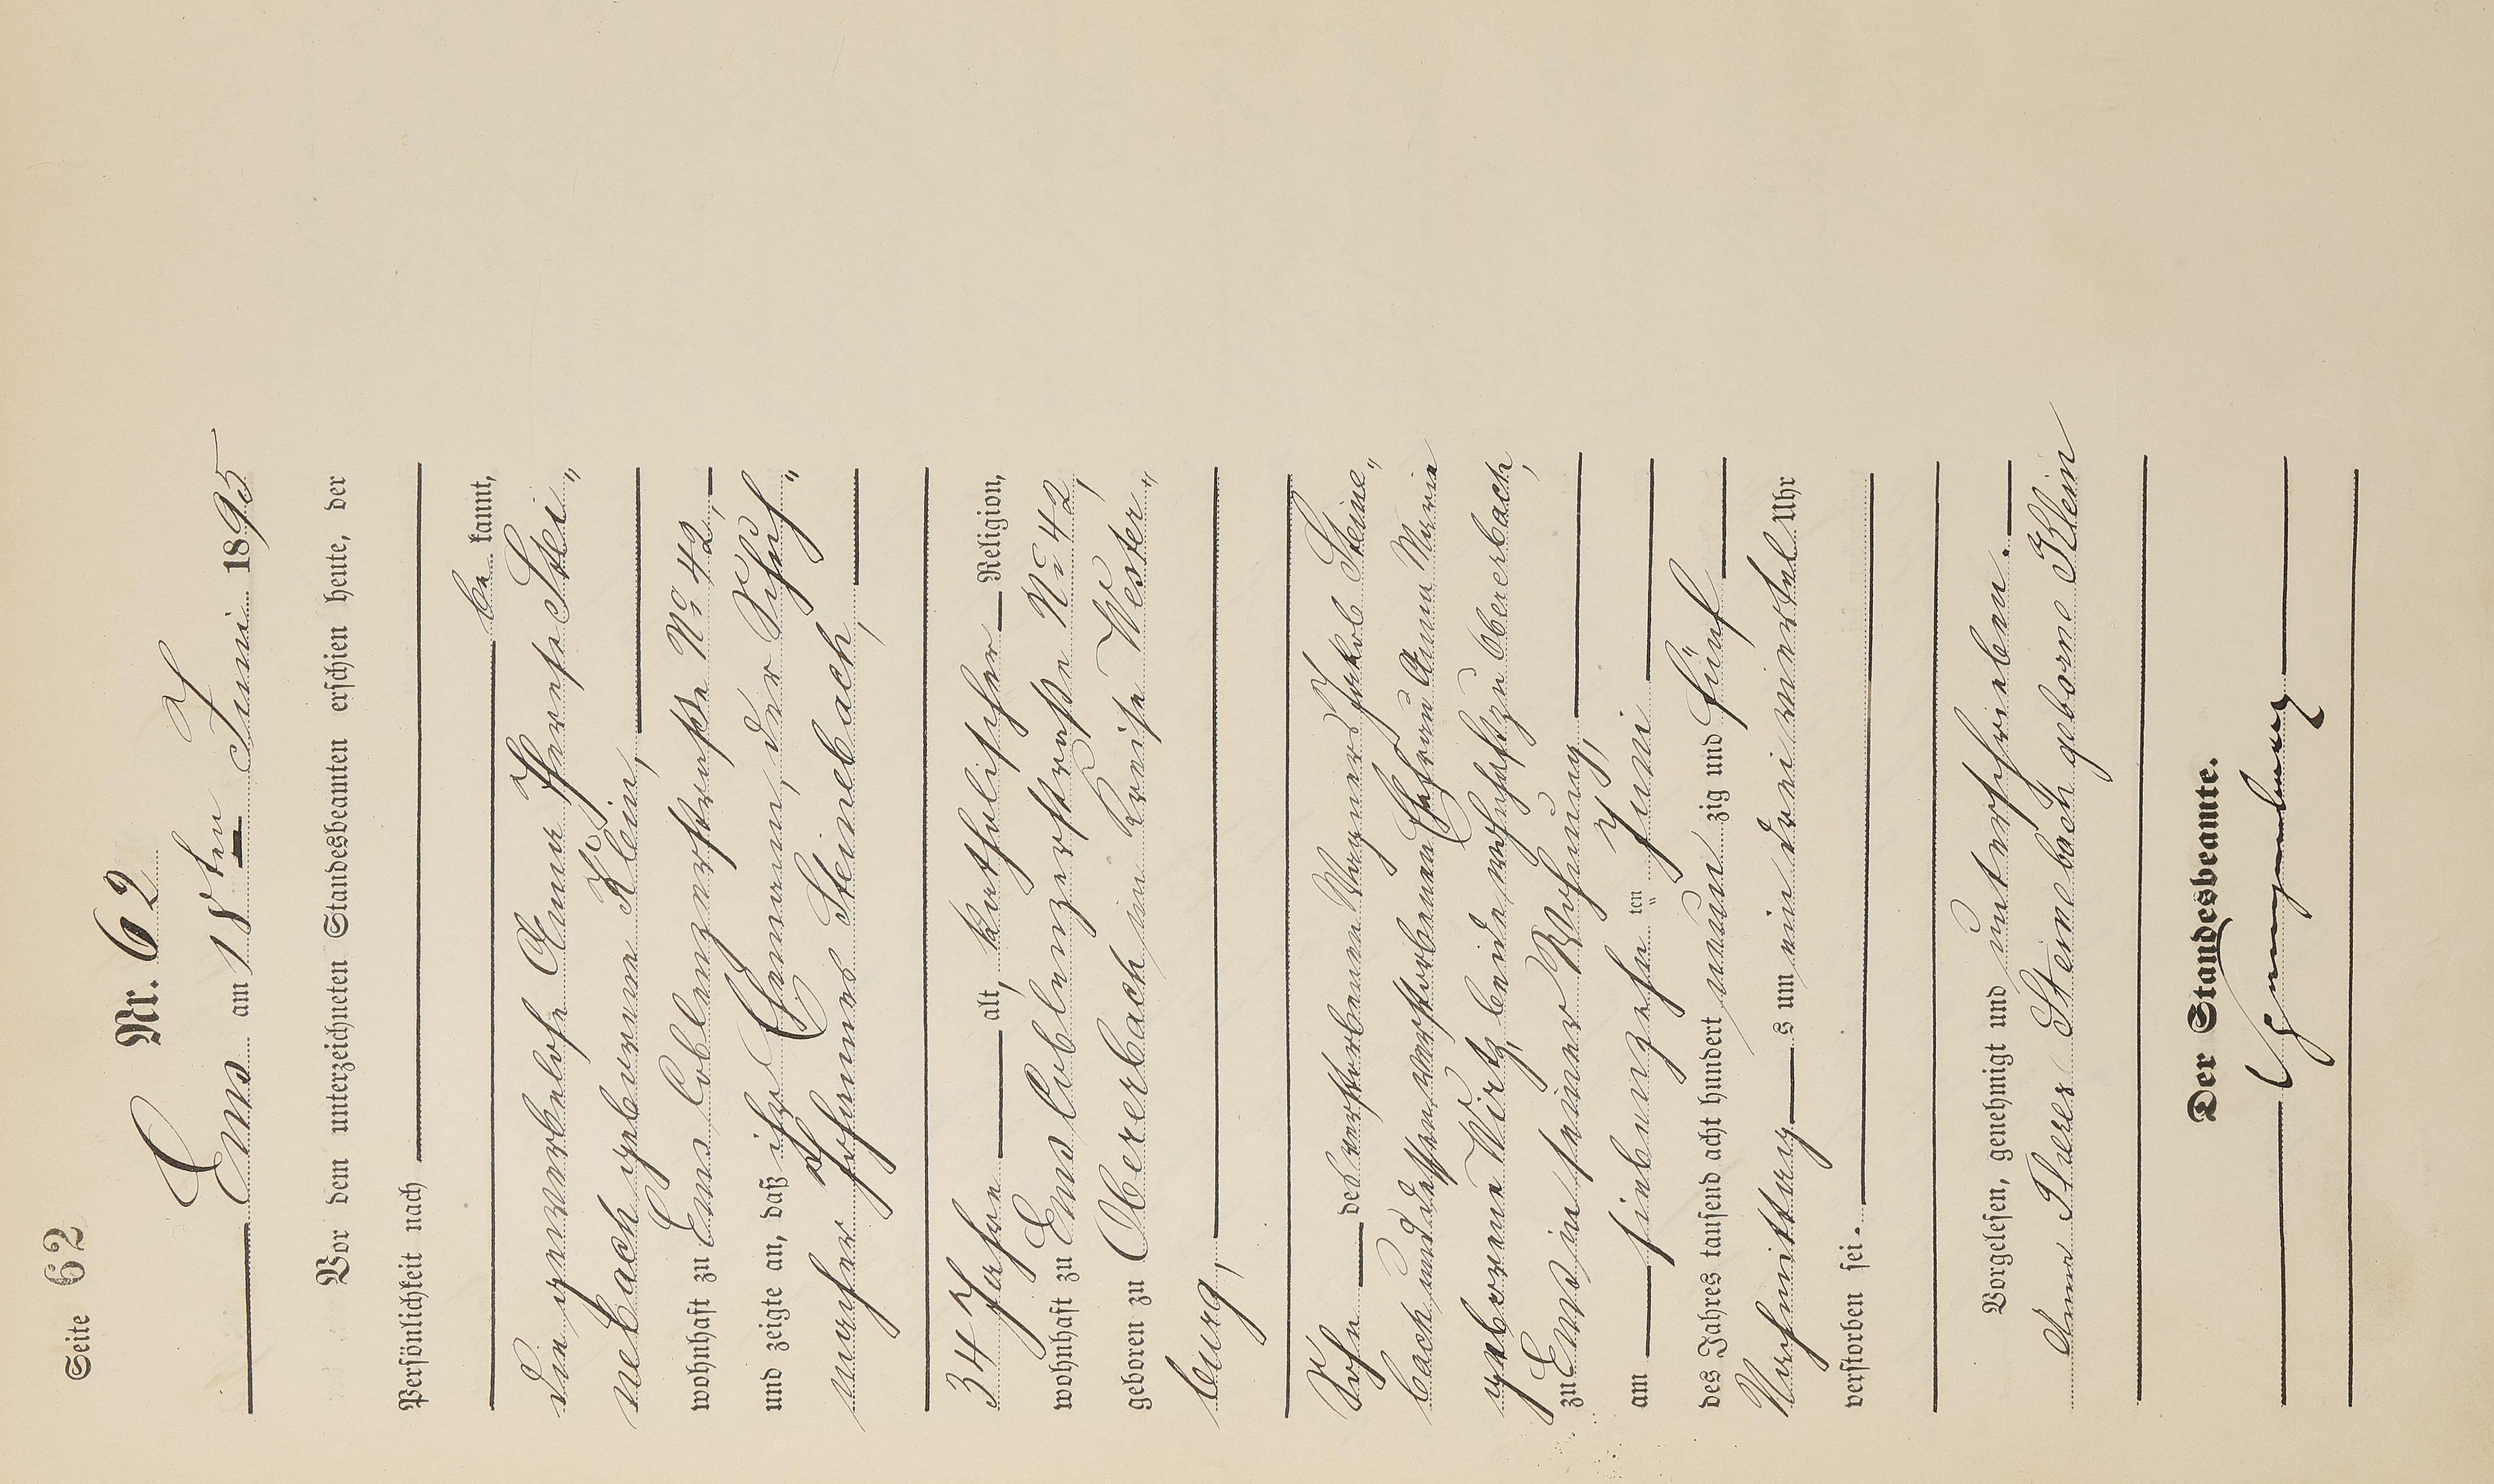 Seite 62
Nr. 62
Ems am 18ten Juni 1895
Vor dem unterzeichneten Standesbeamten erschien heute, der
Persönlichkeit nach
be kannt,
die gewerbelose Anna Therese Stei„
nebach geborene Klein,
wohnhaft zu Ems Coblenzerstraße No 42,
und zeigte an, daß ihr Ehemann, der Schuh„
macher Johannes Steinebach,
34 Jahre alt, katholischer Religion,
wohnhaft zu Ems Coblenzerstraße No 42,
geboren zu Obererbach im Kreise Wester„
burg,
Sohn des verstorbenen Wagners Jakob Steine„
bach und dessen verstorbenen Ehefrau Anna Maria
geborene Wirtz, beide wohnhaft zu Obererbach,
zu Ems in seiner Wohnung,
am siebenzehn ten Juni
des Jahres tausend acht hundert neun zig und fünf
Nachmittag s um ein drei viertel Uhr
verstorben sei.
Vorgelesen, genehmigt und unterschrieben.
Anna Steinebach geborne Klein
Der Standesbeamte.